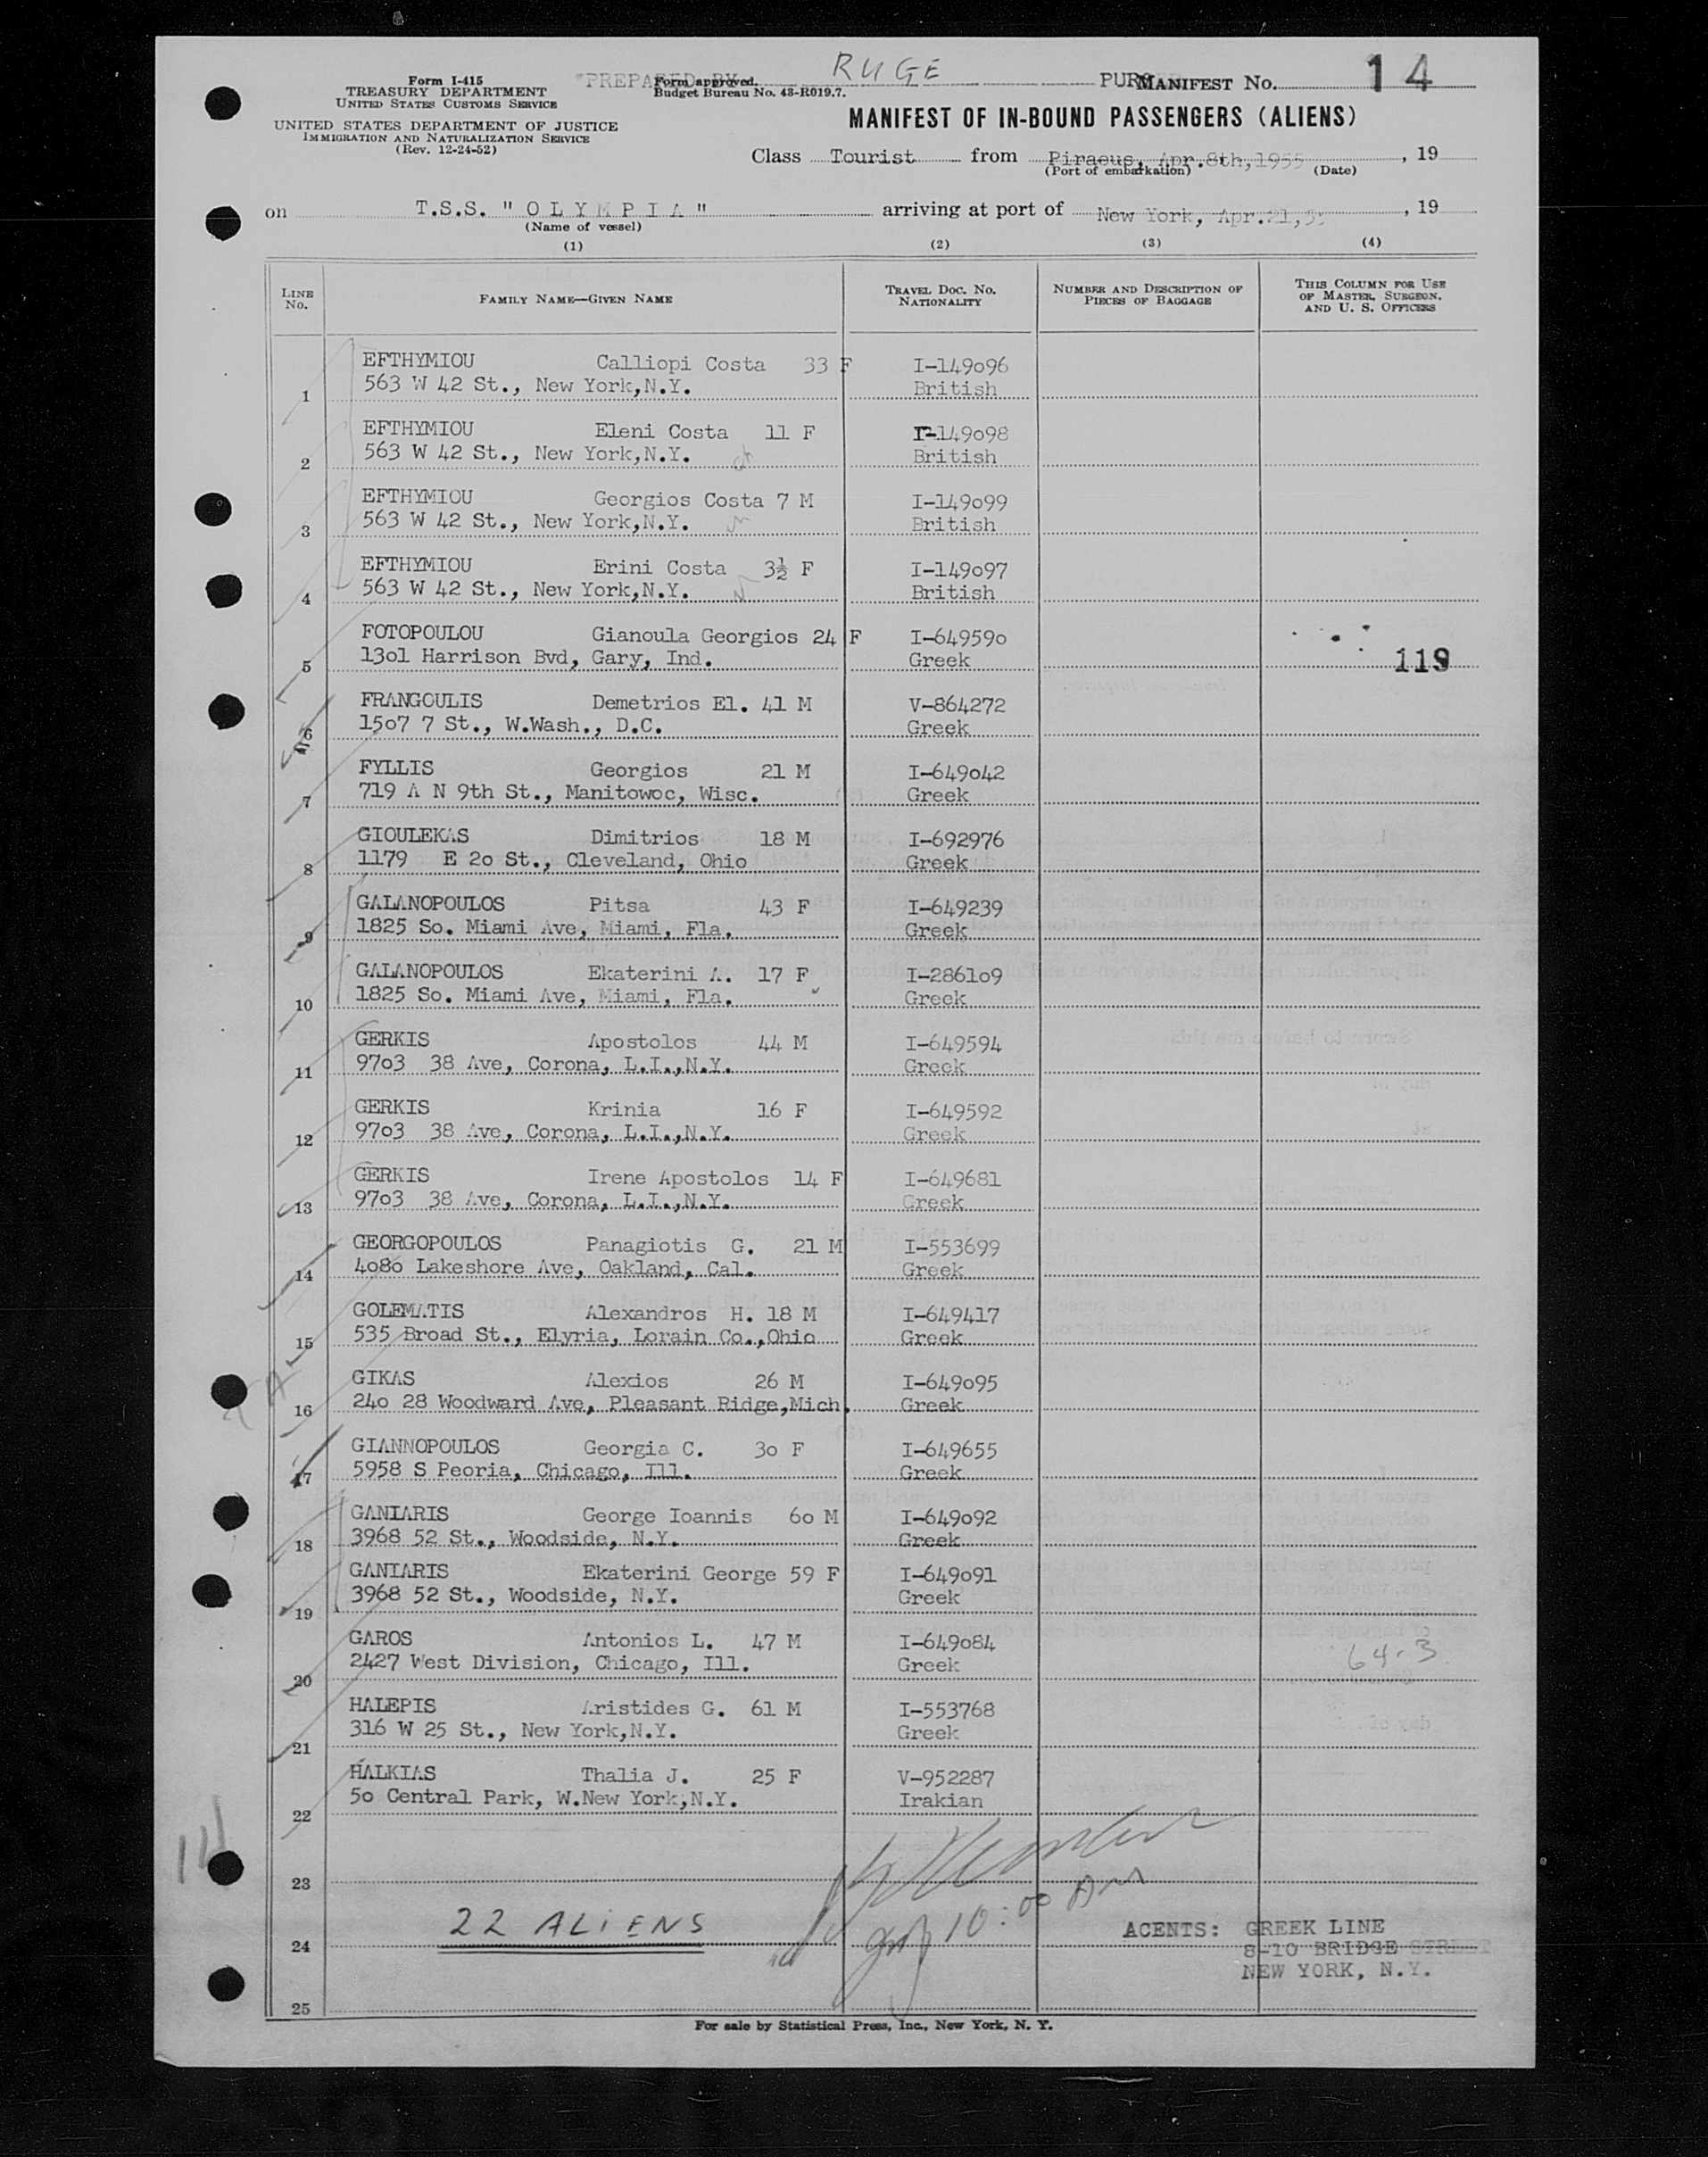 Form I-415
TREASURY DEPARTMENT
UNITED STATES CUSTOMS SERVICE
UNITED STATES DEPARTMENT OF JUSTICE
IMMIGRATION AND NATURALIZATION SERVICE
(Rev. 12-24-52)
PREPARED BY RUGE PURS
Form approved.
Budget Bureau No. 43-R019.7.
MANIFEST No. 14
MANIFEST OF IN-BOUND PASSENGERS (ALIENS)
Class Tourist from Piraeus, Apr.8th,1955, 19
(Port of embarkation) (Date)
on T.S.S. " O L Y M P I A " arriving at port of New York, Apr.21,55, 19
(Name of vessel)
(1) (2) (3) (4)
LINE No. FAMILY NAME—GIVEN NAME TRAVEL DOC. No. NATIONALITY NUMBER AND DESCRIPTION OF PIECES OF BAGGAGE THIS COLUMN FOR USE OF MASTER, SURGEON, AND U. S. OFFICERS
EFTHYMIOU Calliopi Costa 33 F I-149096
1 563 W 42 St., New York,N.Y. British
EFTHYMIOU Eleni Costa 11 F I-149098
2 563 W 42 St., New York,N.Y. British
EFTHYMIOU Georgios Costa 7 M I-149099
3 563 W 42 St., New York,N.Y. British
EFTHYMIOU Erini Costa 3½ F I-149097
4 563 W 42 St., New York,N.Y. British
FOTOPOULOU Gianoula Georgios 24 F I-649590
5 1301 Harrison Bvd, Gary, Ind. Greek 119
FRANGOULIS Demetrios El. 41 M V-864272
6 1507 7 St., W.Wash., D.C. Greek
FYLLIS Georgios 21 M I-649042
7 719 A N 9th St., Manitowoc, Wisc. Greek
GIOULEKAS Dimitrios 18 M I-692976
8 1179 E 20 St., Cleveland, Ohio Greek
GALANOPOULOS Pitsa 43 F I-649239
9 1825 So. Miami Ave, Miami, Fla. Greek
GALANOPOULOS Ekaterini A. 17 F I-286109
10 1825 So. Miami Ave, Miami, Fla. Greek
GERKIS Apostolos 44 M I-649594
11 9703 38 Ave, Corona, L.I.,N.Y. Greek
GERKIS Krinia 16 F I-649592
12 9703 38 Ave, Corona, L.I.,N.Y. Greek
GERKIS Irene Apostolos 14 F I-649681
13 9703 38 Ave, Corona, L.I.,N.Y. Greek
GEORGOPOULOS Panagiotis G. 21 M I-553699
14 4080 Lakeshore Ave, Oakland, Cal. Greek
GOLEMATIS Alexandros H. 18 M I-649417
15 535 Broad St., Elyria, Lorain Co.,Ohio Greek
GIKAS Alexios 26 M I-649095
16 240 28 Woodward Ave, Pleasant Ridge,Mich. Greek
GIANNOPOULOS Georgia C. 30 F I-649655
17 5958 S Peoria, Chicago, Ill. Greek
GANIARIS George Ioannis 60 M I-649092
18 3968 52 St., Woodside, N.Y. Greek
GANIARIS Ekaterini George 59 F I-649091
19 3968 52 St., Woodside, N.Y. Greek
GAROS Antonios L. 47 M I-649084
20 2427 West Division, Chicago, Ill. Greek 64-3
HALEPIS Aristides G. 61 M I-553768
21 316 W 25 St., New York,N.Y. Greek
HALKIAS Thalia J. 25 F V-952287
22 50 Central Park, W.New York,N.Y. Irakian
23
22 ALIENS 10:00 AM
ACENTS: GREEK LINE
24 8-10 BRIDGE STREET
NEW YORK, N.Y.
25
For sale by Statistical Press, Inc., New York, N. Y.